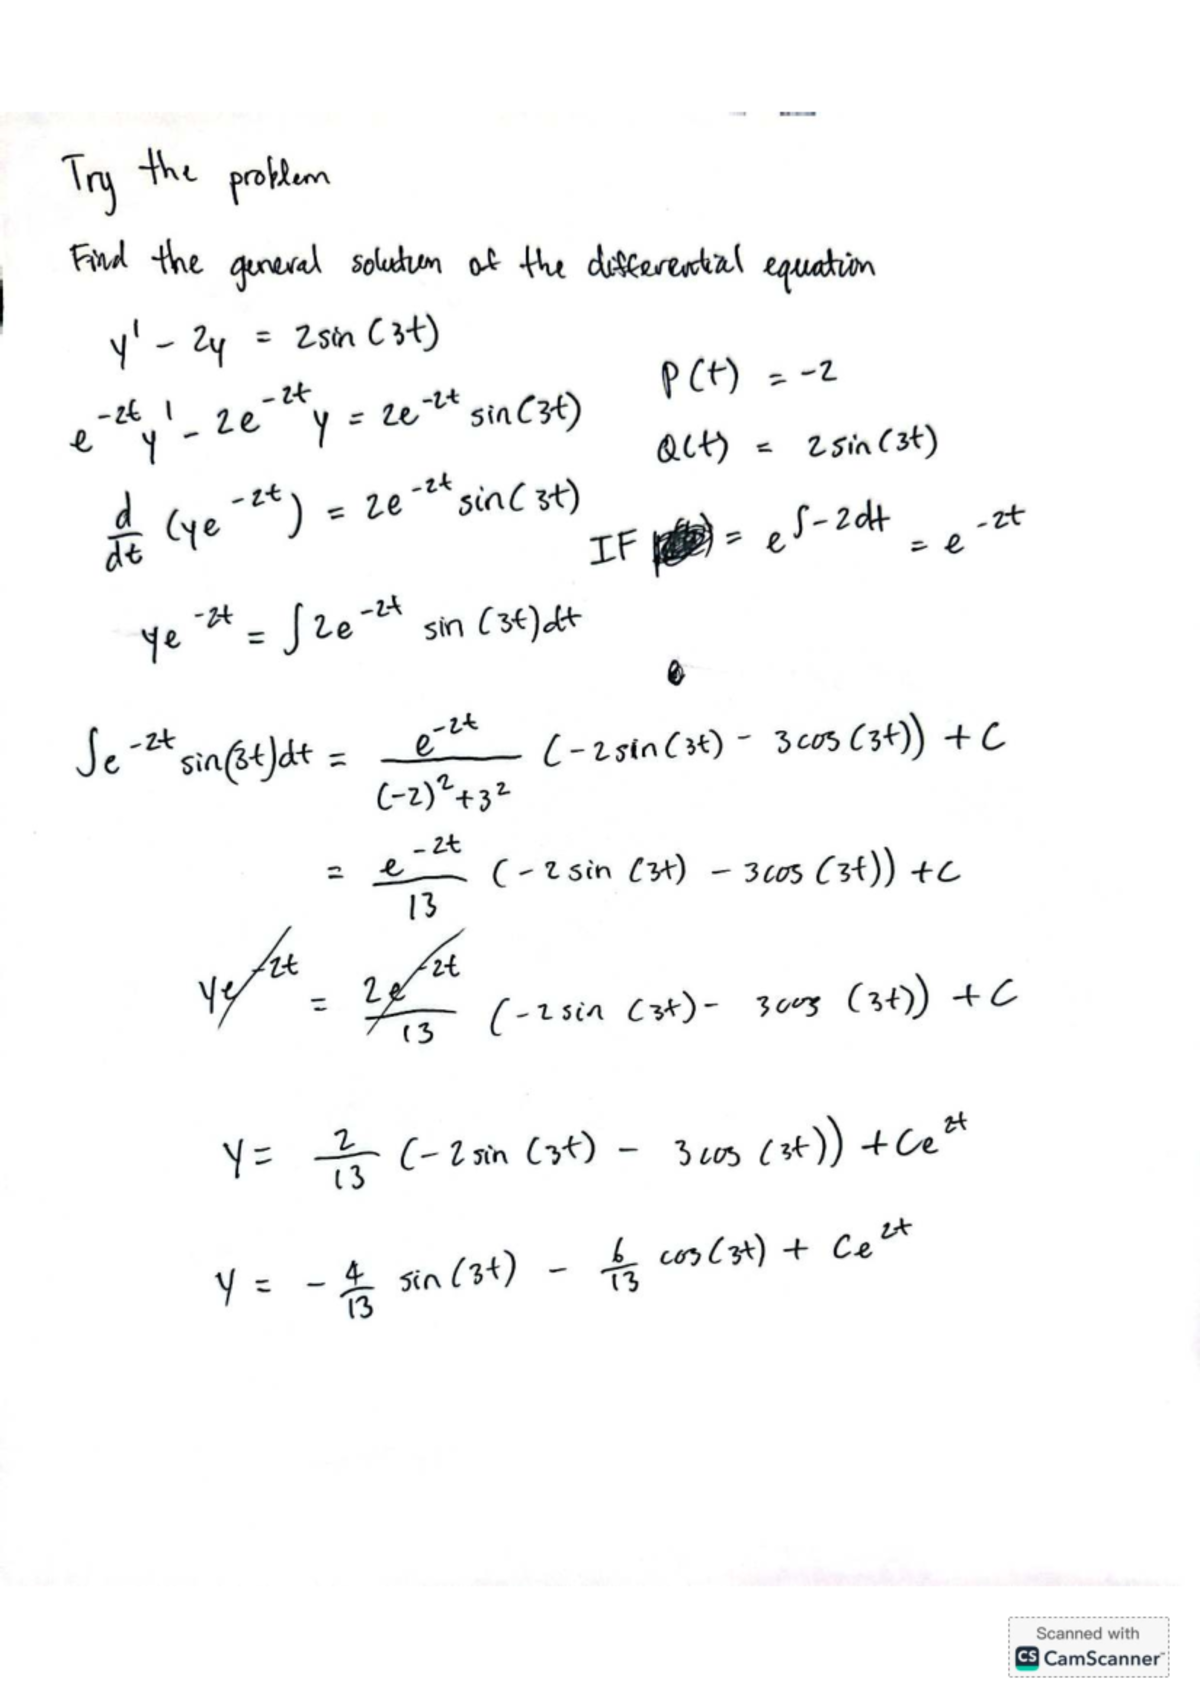 Try the problem
Find the general solution of the differential equation
y' - 2y = 2sin(3t)
P(t) = -2
e^{-2t}y' - 2e^{-2t}y = 2e^{-2t} sin(3t)
Q(t) = 2sin(3t)
d/dt (ye^{-2t}) = 2e^{-2t} sin(3t)
IF = e^{∫-2dt} = e^{-2t}
ye^{-2t} = ∫2e^{-2t} sin(3t)dt
∫e^{-2t} sin(3t)dt = e^{-2t}/((-2)^2+3^2) (-2sin(3t) - 3cos(3t)) + C
= e^{-2t}/13 (-2sin(3t) - 3cos(3t)) + C
ye^{-2t} = 2e^{-2t}/13 (-2sin(3t) - 3cos(3t)) + C
y = 2/13 (-2sin(3t) - 3cos(3t)) + Ce^{2t}
y = -4/13 sin(3t) - 6/13 cos(3t) + Ce^{2t}
Scanned with
CS CamScanner